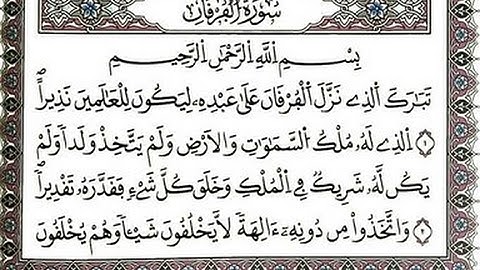 سُورَةُ الْفُرْقَانِ
بِسْمِ اِللَّهِ اِلرَّحْمَٰنِ اِلرَّحِيمِ
تَبَٰرَكَ اَلذِے نَزَّلَ اَلْفُرْقَانَ عَلَيٰ عَبْدِهِۦ لِيَكُونَ لِلْعَٰلَمِينَ نَذِيراًۖ
١ اِلذِے لَهُۥ مُلْكُ اُلسَّمَٰوَٰتِ وَالَارْضِ وَلَمْ يَتَّخِذْ وَلَداٗ وَلَمْ
يَكُن لَّهُۥ شَرِيكٞ فِے اِلْمُلْكِ وَخَلَقَ كُلَّ شَےْءٖ فَقَدَّرَهُۥ تَقْدِيراٗۖ
٢ وَاتَّخَذُواْ مِن دُونِهِۦٓ ءَالِهَةٗ لَّا يَخْلُقُونَ شَيْـٔاٗ وَهُمْ يُخْلَقُونَ